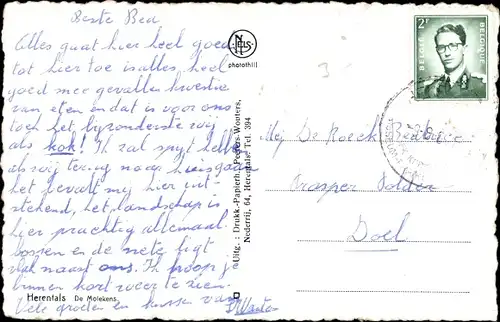 Beste Bea
Alles gaat hier heel goed
tot hier toe is alles heel
goed mee gevallen kwestie
van eten en dat is voor ons
toch het byzonderste wij
als kok! Ik zal spyt hebbe
als wij terug naar huis gaan
het bevalt mij hier uit-
stekend, het landschap is
hier prachtig allemaal
bossen en de nete ligt
vlak naast ons. Ik hoop je
binnen kort weer te zien.
Vele groeten en kussen van
Herentals De Molekens
NELS
photothill
Uitg.: Drukk.-Papierh. Peeters-Wouters,
Nederrij, 64, Herentals Tel. 394
2F
BELGIE
BELGIQUE
Mej De Kock
Prosper Polder
Doel